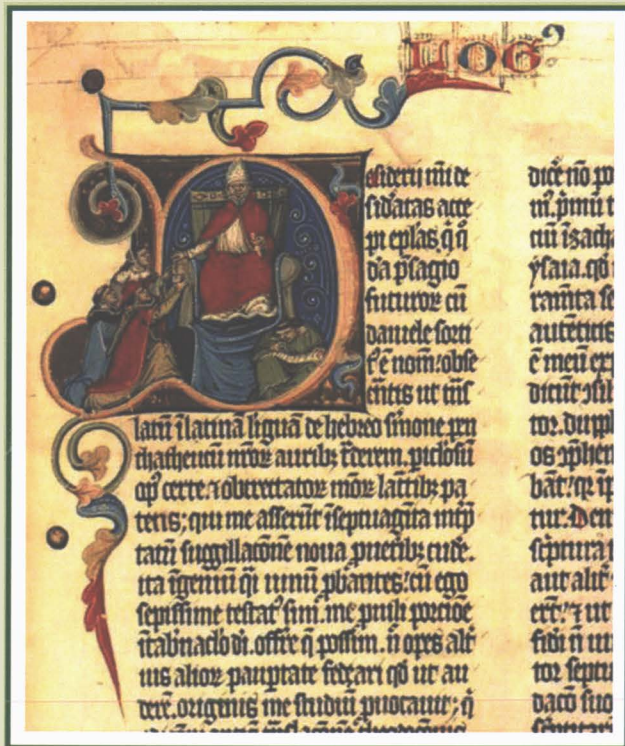 LOG
esiderij mi de
sidatas acce
pi eplas. q̄ q̄
dā p̄sagio
futuroꝝ cū
daniele sorti
t᷒ ē nom̄: obse
c̄ntis ut tn̄s
latū ī latinā liguā de hebreo s̄mone pen
thatheucū nr̄oꝝ auribꝫ t̄derem. piclosū
op᷒ certe. ⁊ obtrectatoꝝ mōꝝ latr̄ibꝫ pa
tens; qui me asserūt ī septuagīta intp̄
tatū suggillac̄onē noua p uetibꝫ cude.
ita īgeniū q̄i uinū pbantes: cū ego
sepissime testat᷒ sim. me p uili porcioē
ī tab̄naclo di. offr̄e q̄ possim. n̄ opes alt̄
ius alioꝝ paupertate fedari. qd̄ ut au
derē. origenis me studiū puocauit; q̄
dic̄e nō po
m̄. p̄mū t
ciū ī zacha
ysaia. qd̄
ramīta se
autētic᷒
ē meū ex
dicūt
tor. du pl
os
bāt:
tur. Den
sc̄ptura
aut alit̄
ect̄: ⁊ ut
sibi n̄ ui
tor septu
dac̄o suo